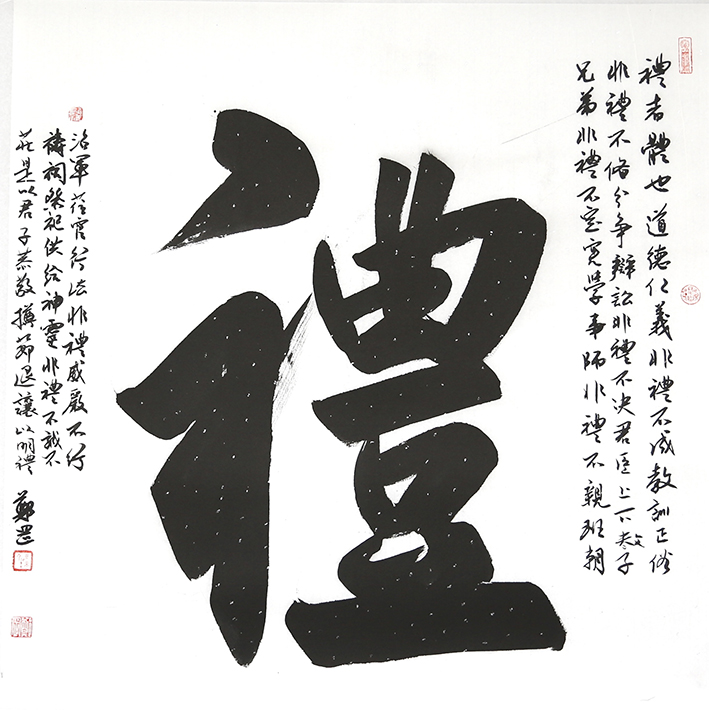 禮
禮者體也道德仁義非禮不成教訓正俗
非禮不备分争辯訟非禮不决君臣上下父子
兄弟非禮不定宦學事師非禮不親班朝
治軍莅官行法非禮威嚴不行
禱祠祭祀供给神靈非禮不誠不
莊是以君子恭敬撙節退讓以明禮 鄭